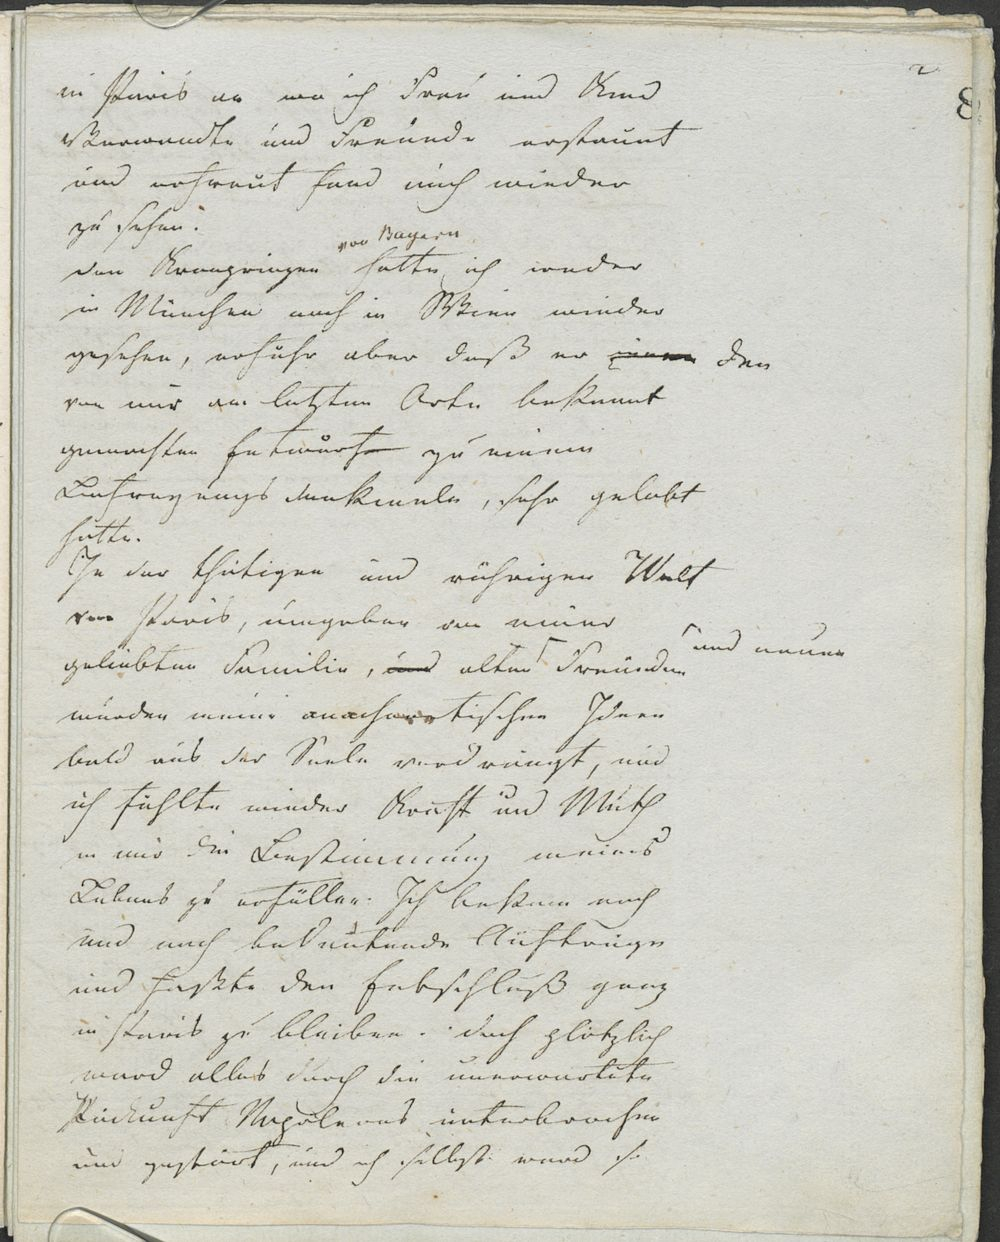 2
8
in Paris an wo ich Frau und Kind
Verwandte und Freunde erstaunt
und erfreut fand mich wieder
zu sehen.
von Bayern
den Kronprinzen hatte ich weder
in München noch in Wien wieder
gesehen, erfuhr aber daß er den
von mir am letzten Orte bekannt
gemachten Entwurf zu einem
Befreyungsdenkmale, sehr gelobt
hatte.
In der thätigen und rührigen Welt
von Paris, umgeben von einer
geliebten Familie, und alten Freunden und neuen
wurden meine anachoretischen Ideen
bald aus der Seele verdrängt, und
ich fühlte wieder Kraft und Muth
in mir die Bestimmung meines
Lebens zu erfüllen. Ich bekam nach
und nach bedeutende Aufträge
und faßte den Entschluß ganz
in Paris zu bleiben. doch plötzlich
ward alles durch die unerwartete
Rückunft Napoleons unterbrochen
und gestört, und ich selbst ward so